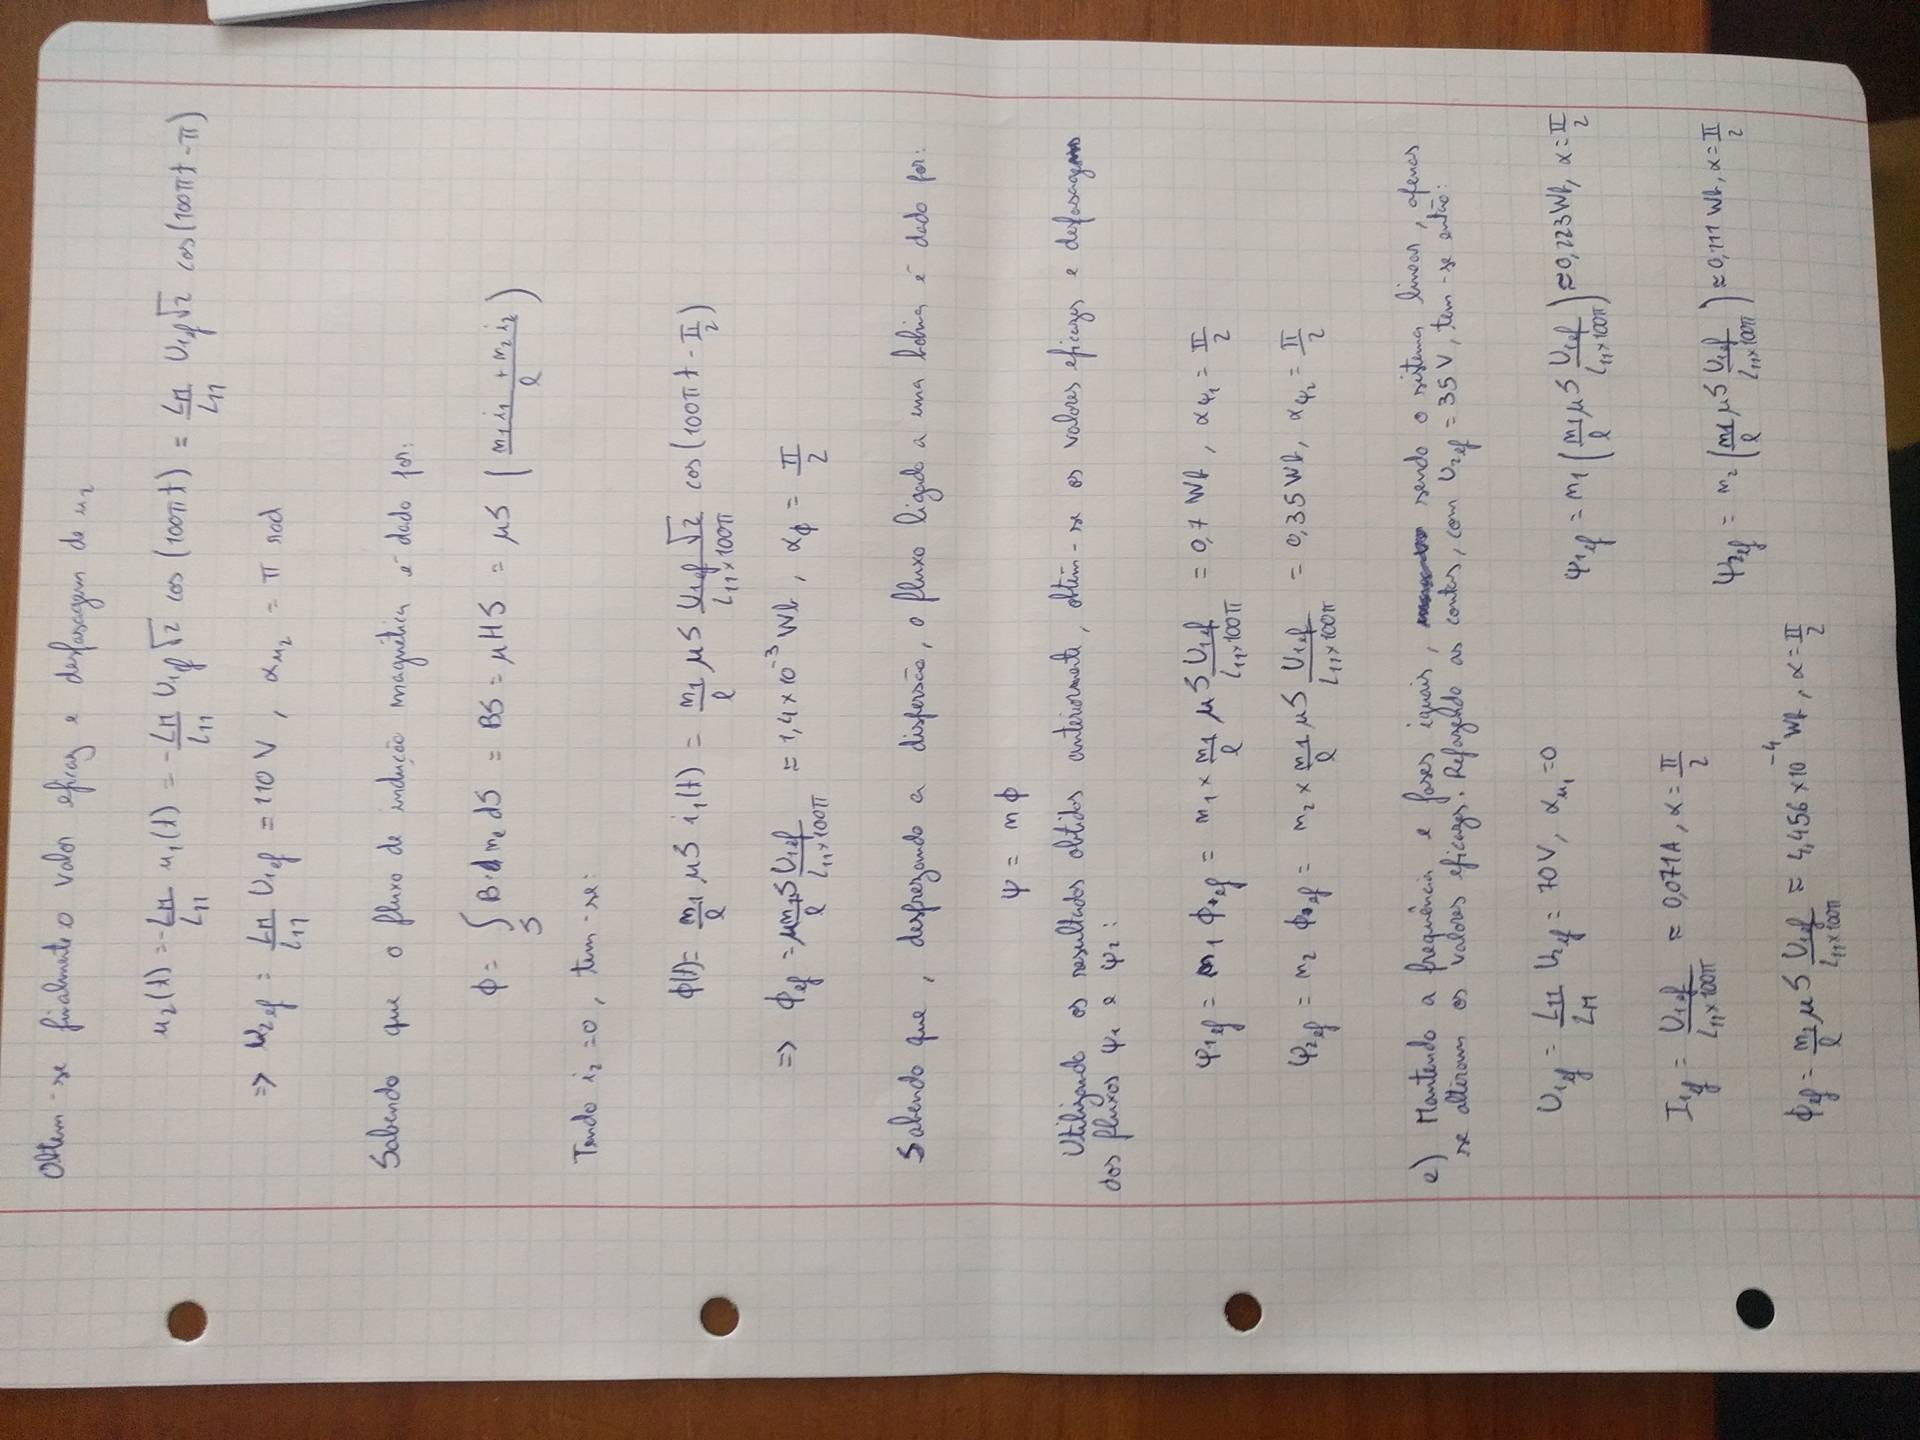 Obtem-se finalmente o valor eficaz e desfasagem de u₂
u₂(t) = -L_M/L₁₁ u₁(t) = -L_M/L₁₁ U₁ef√2 cos(100πt) = L_M/L₁₁ U₁ef√2 cos(100πt-π)
=> U₂ef = L_M/L₁₁ U₁ef = 110 V, α_u₂ = π rad
Sabendo que o fluxo de indução magnética é dado por:
ϕ = ∫_S B·n_e dS = BS = μHS = μS (n₁i₁ + n₂i₂ / l)
Tendo i₂=0, tem-se:
ϕ(t) = n₁/l μS i₁(t) = n₁/l μS U₁ef√2/L₁₁×100π cos(100πt - π/2)
=> ϕef = μn₁S/l U₁ef/L₁₁×100π ≈ 1,4×10⁻³ Wb, α_ϕ = π/2
Sabendo que, desprezando a dispersão, o fluxo ligado a uma bobina é dado por:
ψ = nϕ
Utilizando os resultados obtidos anteriormente, obtêm-se os valores eficazes e desfasagem
dos fluxos ψ₁ e ψ₂:
ψ₁ef = n₁ ϕef = n₁ × n₁/l μS U₁ef/L₁₁×100π = 0,7 Wb, α_ψ₁ = π/2
ψ₂ef = n₂ ϕef = n₂ × n₁/l μS U₁ef/L₁₁×100π = 0,35 Wb, α_ψ₂ = π/2
e) Mantendo a frequência e fases iguais, sendo o sistema linear, apenas
se alteram os valores eficazes. Refazendo as contas, com U₂ef = 35 V, tem-se então:
U₁ef = L₁₁/L_M U₂ef = 70 V, α_u₁ = 0
I₁ef = U₁ef/L₁₁×100π ≈ 0,071A, α = π/2
ϕef = n₁/l μS U₁ef/L₁₁×100π ≈ 4,456×10⁻⁴ Wb, α = π/2
ψ₁ef = n₁ (n₁/l μS U₁ef/L₁₁×100π) ≈ 0,223 Wb, α = π/2
ψ₂ef = n₂ (n₁/l μS U₁ef/L₁₁×100π) ≈ 0,111 Wb, α = π/2